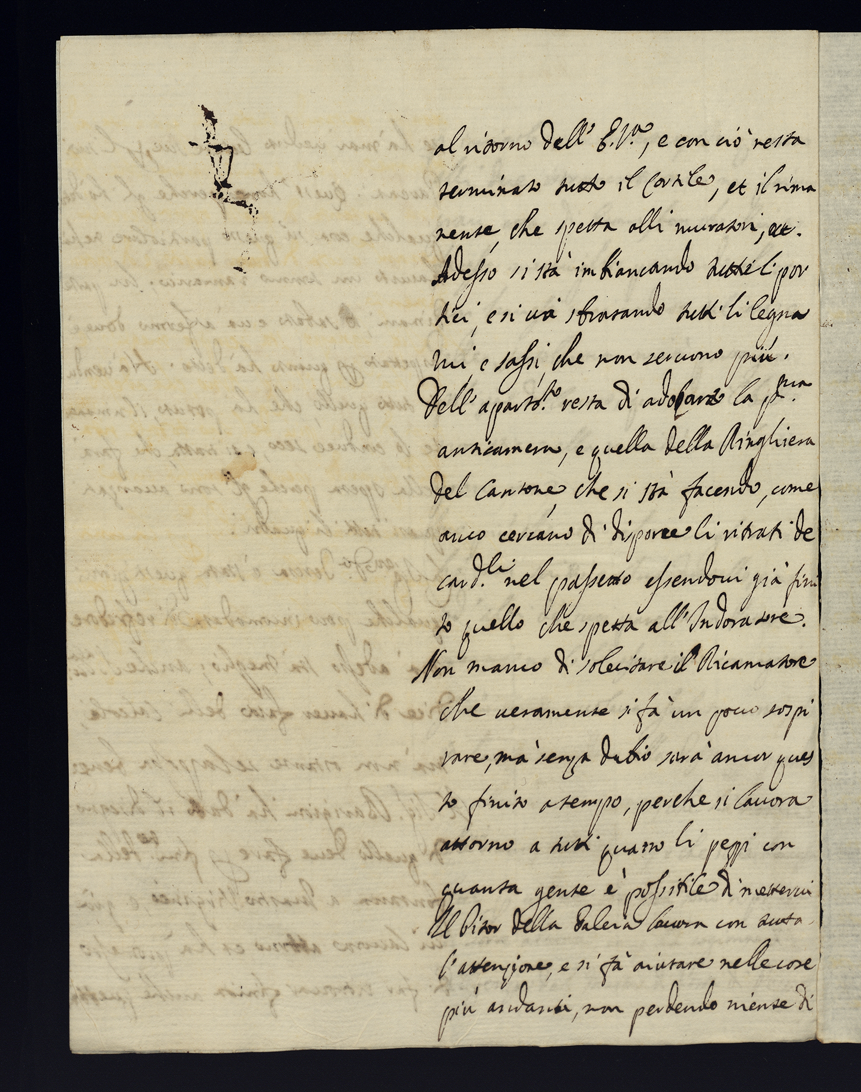 al ritorno dell' E.V.ª, e con ciò resta
terminato tutto il Cortile, et il rima
nente, che spetta alli muratori, etc.
Adesso si stà imbiancando tutti li por
tici, e si và sbrasando tutti li legna
mi, e sassi, che non servono più.
Dell' apart.to resta di adobare la p.ma
anticamera, e quella della Ringhiera
del Cantone, che si stà facendo, come
anco cercano di disporre li ritrati de
card.li nel passetto essendovi già fini
to quello che spetta all' Indoratore.
Non manco di solecitare il Ricamatore
che veramente si fà un poco sospi
rare, mà senza dubio sarà ancor ques
to finito a tempo, perche si lavora
attorno a tutti quatro li pezzi con
quanta gente è possibile di mettervi
Il Pitor della Galeria lavora con tutta
l'attenzione, e si fà aiutare nelle cose
più andanti, non perdendo niente di